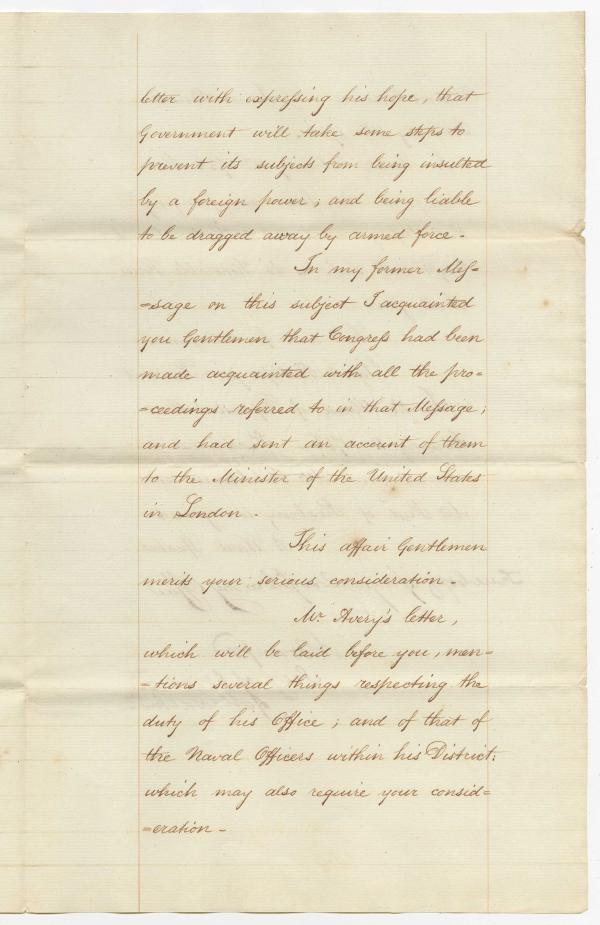 letter with expreſsing his hope, that
Government will take some steps to
prevent its subjects from being insulted
by a foreign power; and being liable
to be dragged away by armed force.
In my former Meſ=
=sage on this subject I acquainted
you Gentlemen that Congreſs had been
made acquainted with all the pro=
=ceedings referred to in that Meſsage;
and had sent an account of them
to the Minister of the United States
in London.
This affair Gentlemen
merits your serious consideration.
Mr. Avery's letter,
which will be laid before you, men=
=tions several things respecting the
duty of his Office; and of that of
the Naval Officers within his District;
which may also require your consid=
=eration.